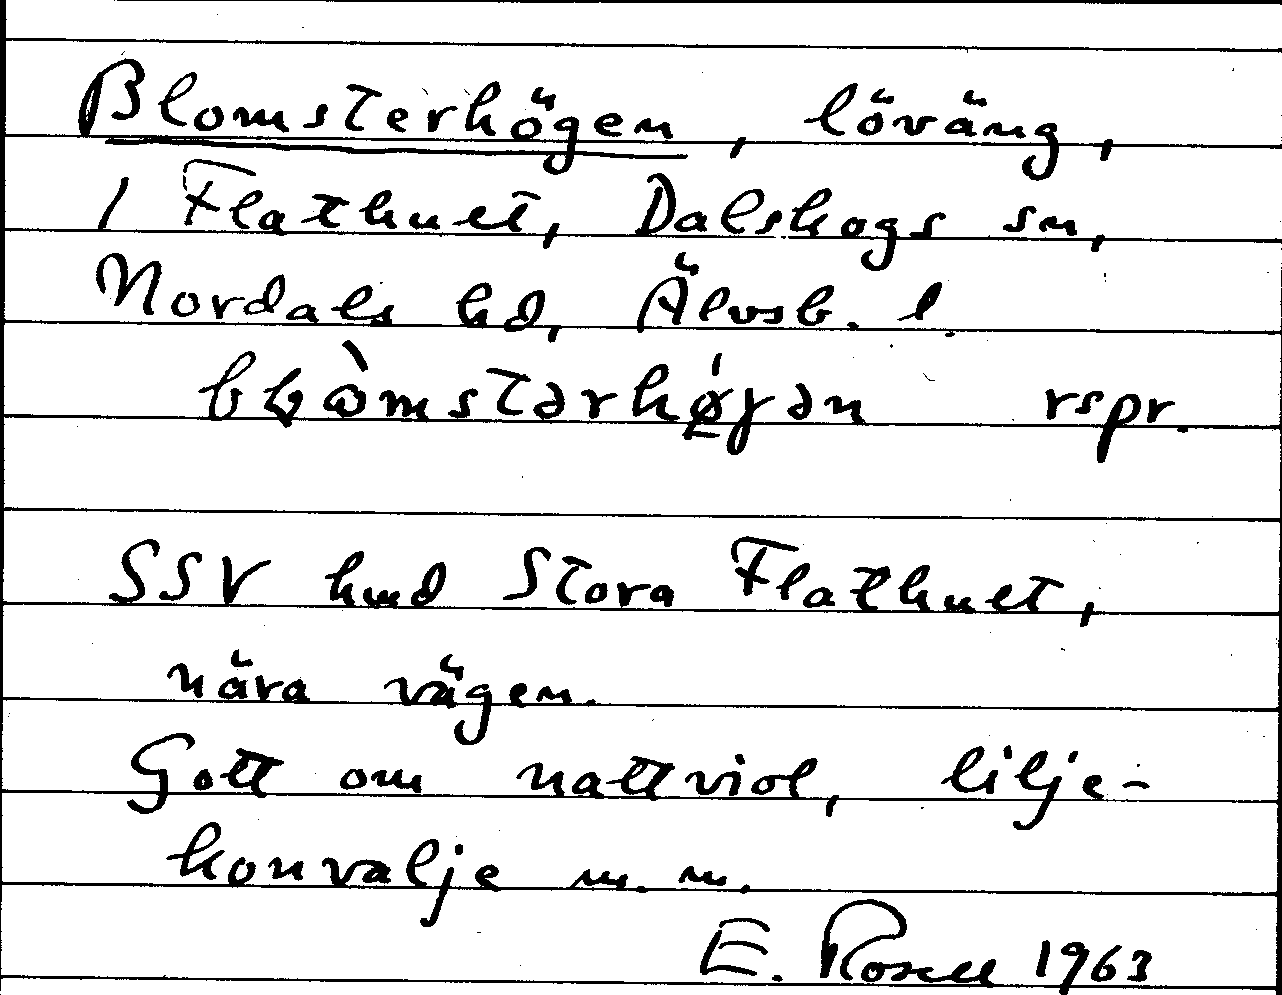 Blomsterhögen, löväng,
1 Flathuet, Dalskogs sn,
Nordals hd, Älvsb. l.
rspr.
SSV hmd Stora Flathuet,
nära vägen.
Gott om nattviol, lilje-
konvalje m. m.
E. Rosell 1963